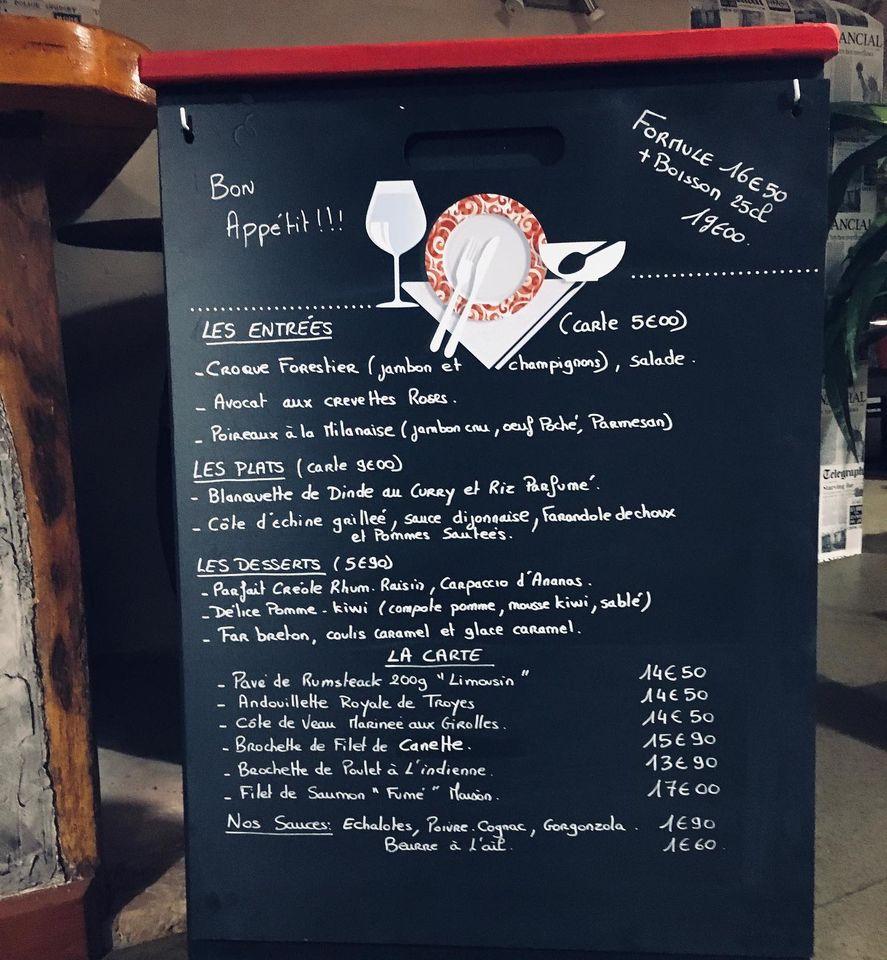 FINANCIAL
ANCIAL
ANCIAL
IAL
Telegraph
Bon
Appétit!!!
FORMULE 16€50
+ Boisson 25cl
19€00.
LES ENTRÉES (carte 5€00)
- Croque Forestier (jambon et champignons), salade.
- Avocat aux crevettes Roses.
- Poireaux à la Milanaise (jambon cru, oeuf Poché, Parmesan)
LES PLATS (carte 9€00)
- Blanquette de Dinde au Curry et Riz Parfumé.
- Côte d'échine grilleé, sauce dijonnaise, Farandole de choux
et Pommes Sauteés.
LES DESSERTS (5€90)
- Parfait Créole Rhum. Raisin, Carpaccio d'Ananas.
- Délice Pomme - kiwi (compote pomme, mousse kiwi, sablé)
- Far breton, coulis caramel et glace caramel.
LA CARTE
- Pavé de Rumsteack 200g "Limousin" 14€50
- Andouillette Royale de Troyes 14€50
- Côte de Veau Marineé aux Girolles. 14€50
- Brochette de Filet de Canette. 15€90
- Brochette de Poulet à L'indienne. 13€90
- Filet de Saumon "Fumé" Maison. 17€00
Nos Sauces: Echalotes, Poivre. Cognac, Gorgonzola. 1€90
Beurre à l'ail. 1€60.